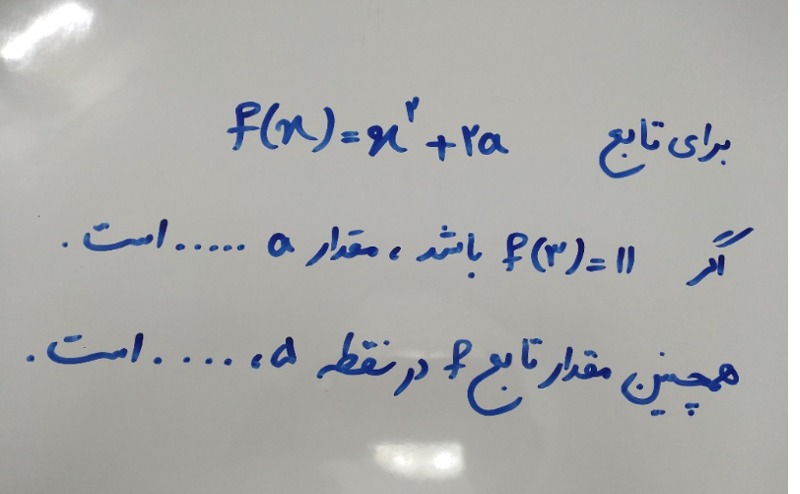 برای تابع f(x)=x^۲+۲a
اگر f(۳)=۱۱ باشد، مقدار a ..... است.
همچنین مقدار تابع f در نقطه ۵، .... است.